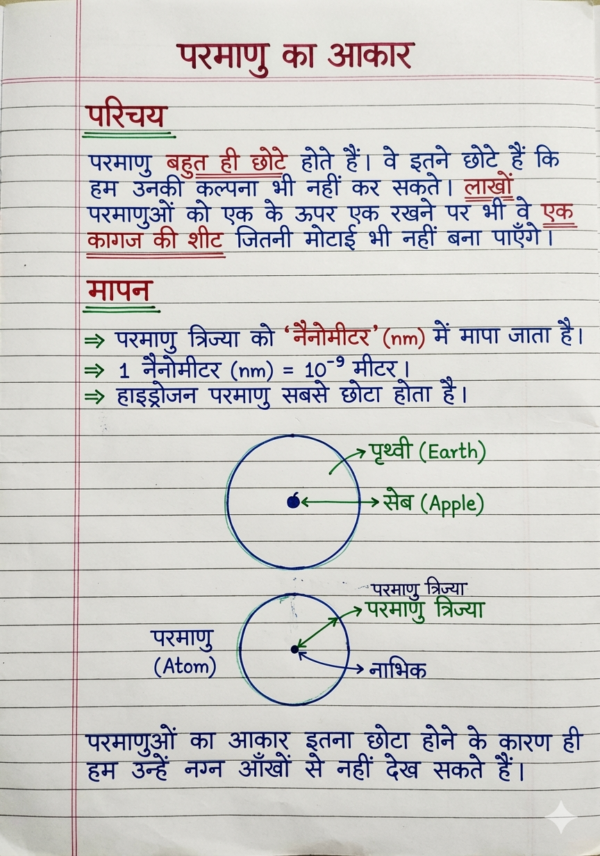 परमाणु का आकार
परिचय
परमाणु बहुत ही छोटे होते हैं। वे इतने छोटे हैं कि
हम उनकी कल्पना भी नहीं कर सकते। लाखों
परमाणुओं को एक के ऊपर एक रखने पर भी वे एक
कागज की शीट जितनी मोटाई भी नहीं बना पाएँगे।
मापन
⇒ परमाणु त्रिज्या को ‘नैनोमीटर’ (nm) में मापा जाता है।
⇒ 1 नैनोमीटर (nm) = 10⁻⁹ मीटर।
⇒ हाइड्रोजन परमाणु सबसे छोटा होता है।
पृथ्वी (Earth)
सेब (Apple)
परमाणु त्रिज्या
परमाणु त्रिज्या
परमाणु
(Atom)
नाभिक
परमाणुओं का आकार इतना छोटा होने के कारण ही
हम उन्हें नग्न आँखों से नहीं देख सकते हैं।